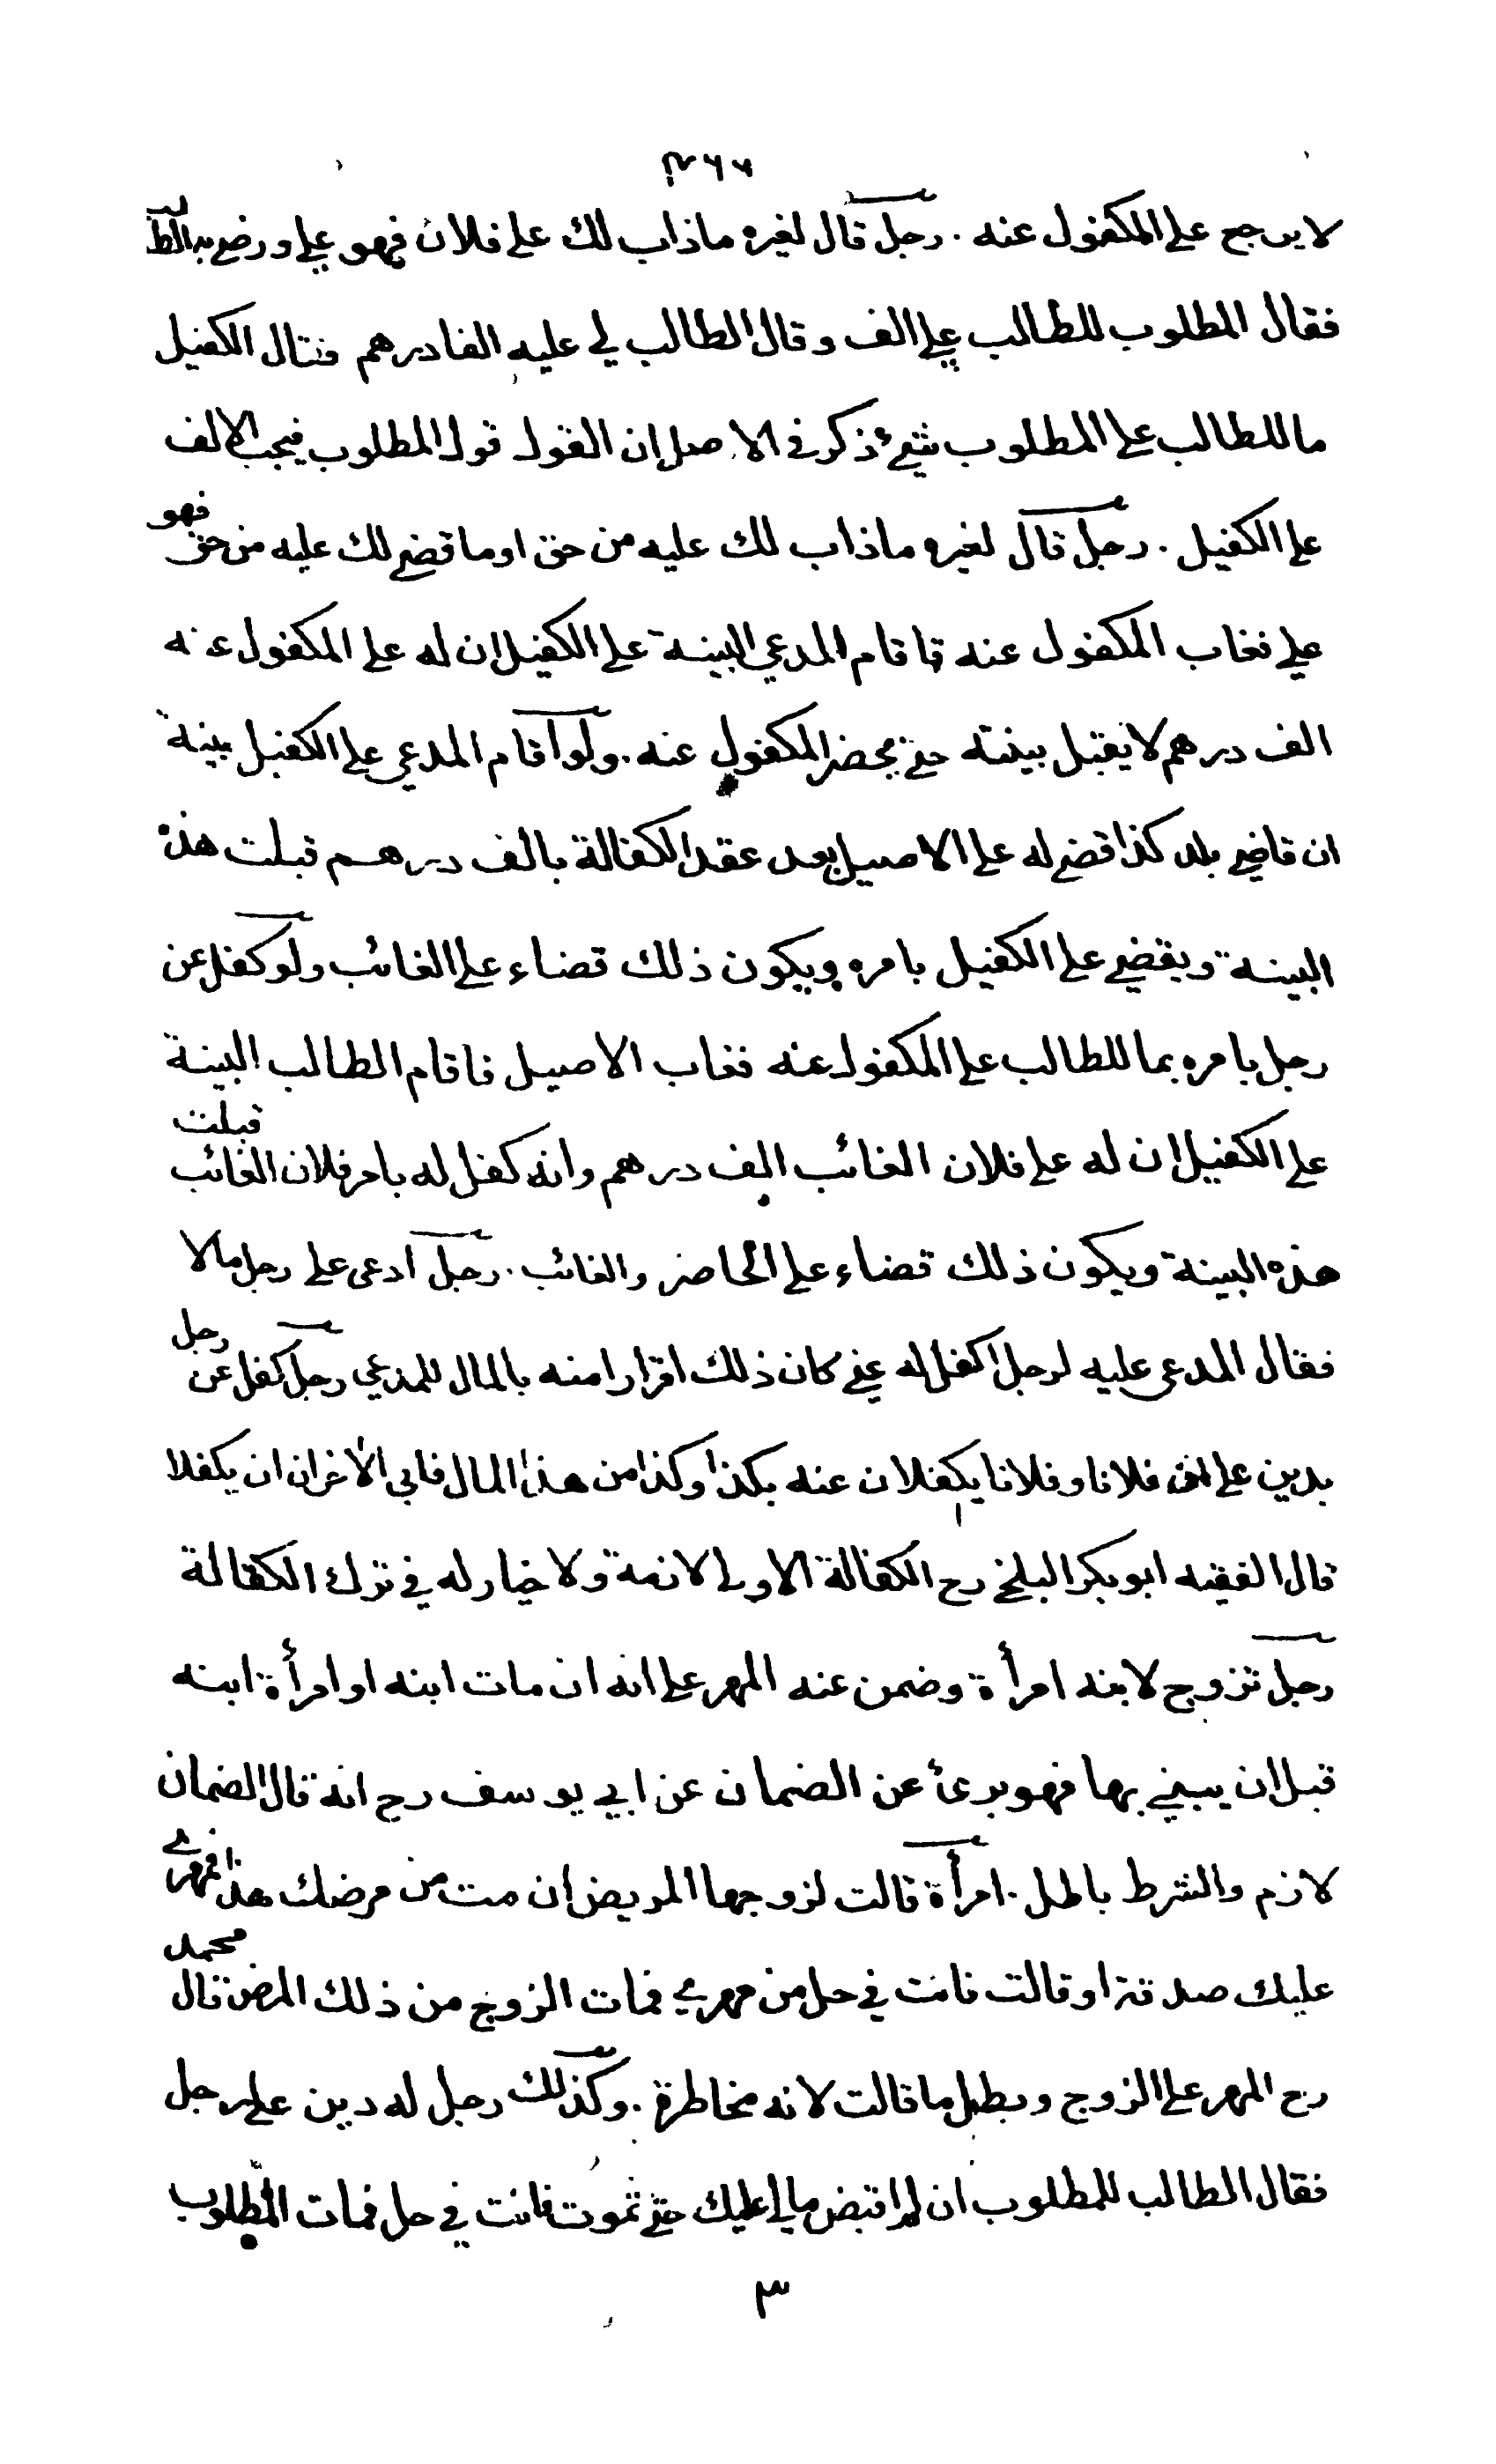 ٣٦٧
لا يرجع على المكفول عنه . رجل قال لغيره ماذاب لك على فلان فهو علي ورضي به الطالب
فقال المطلوب للطالب علي الف وقال الطالب لي عليه الفا درهم فقال الكفيل
ما للطالب على المطلوب شيء ذكر في الاصل ان القول قول المطلوب فيجب الالف
على الكفيل . رجل قال لغيره ماذاب لك عليه من حق او ما قضي لك عليه من حق فهو
علي فغاب المكفول عنه فاقام المدعي البينة على الكفيل ان له على المكفول عنه
الف درهم لا يقبل بينته حتى يحضر المكفول عنه . ولو اقام المدعي على الكفيل بينة
ان قاضي بلد كذا قضى له على الاصيل بعد عقد الكفالة بالف درهم قبلت هذه
البينة ويقضي على الكفيل بامره ويكون ذلك قضاء على الغائب ولو كفل عن
رجل بامره بما للطالب على المكفول عنه فغاب الاصيل فاقام الطالب البينة
على الكفيل ان له على فلان الغائب الف درهم وانه كفل له بامر فلان الغائب قبلت
هذه البينة ويكون ذلك قضاء على الحاضر والغائب . رجل ادعى على رجل مالا
فقال المدعى عليه لرجل اكفل له عني كان ذلك اقرارا منه بالمال للمدعي رجل كفل عن رجل
بدين على ان فلانا وفلانا يكفلان عنه بكذا وكذا من هذا المال فابى الآخران ان يكفلا
قال الفقيه ابو بكر البلخي رح الكفالة الاولى لازمة ولا خيار له في ترك الكفالة
رجل تزوج لابنه امرأة وضمن عنه المهر على انه ان مات ابنه او امرأة ابنه
قبل ان يبني بها فهو برئ عن الضمان عن ابي يوسف رح انه قال الضمان
لازم والشرط باطل . امرأة قالت لزوجها المريض ان مت من مرضك هذا فمهري
عليك صدقة او قالت فانت في حل من مهري فمات الزوج من ذلك المرض قال محمد
رح المهر على الزوج وبطل ما قالت لانه مخاطرة . وكذلك رجل له دين على رجل
فقال الطالب للمطلوب ان لم اقبض ما لي عليك حتى تموت فانت في حل فمات المطلوب
٣